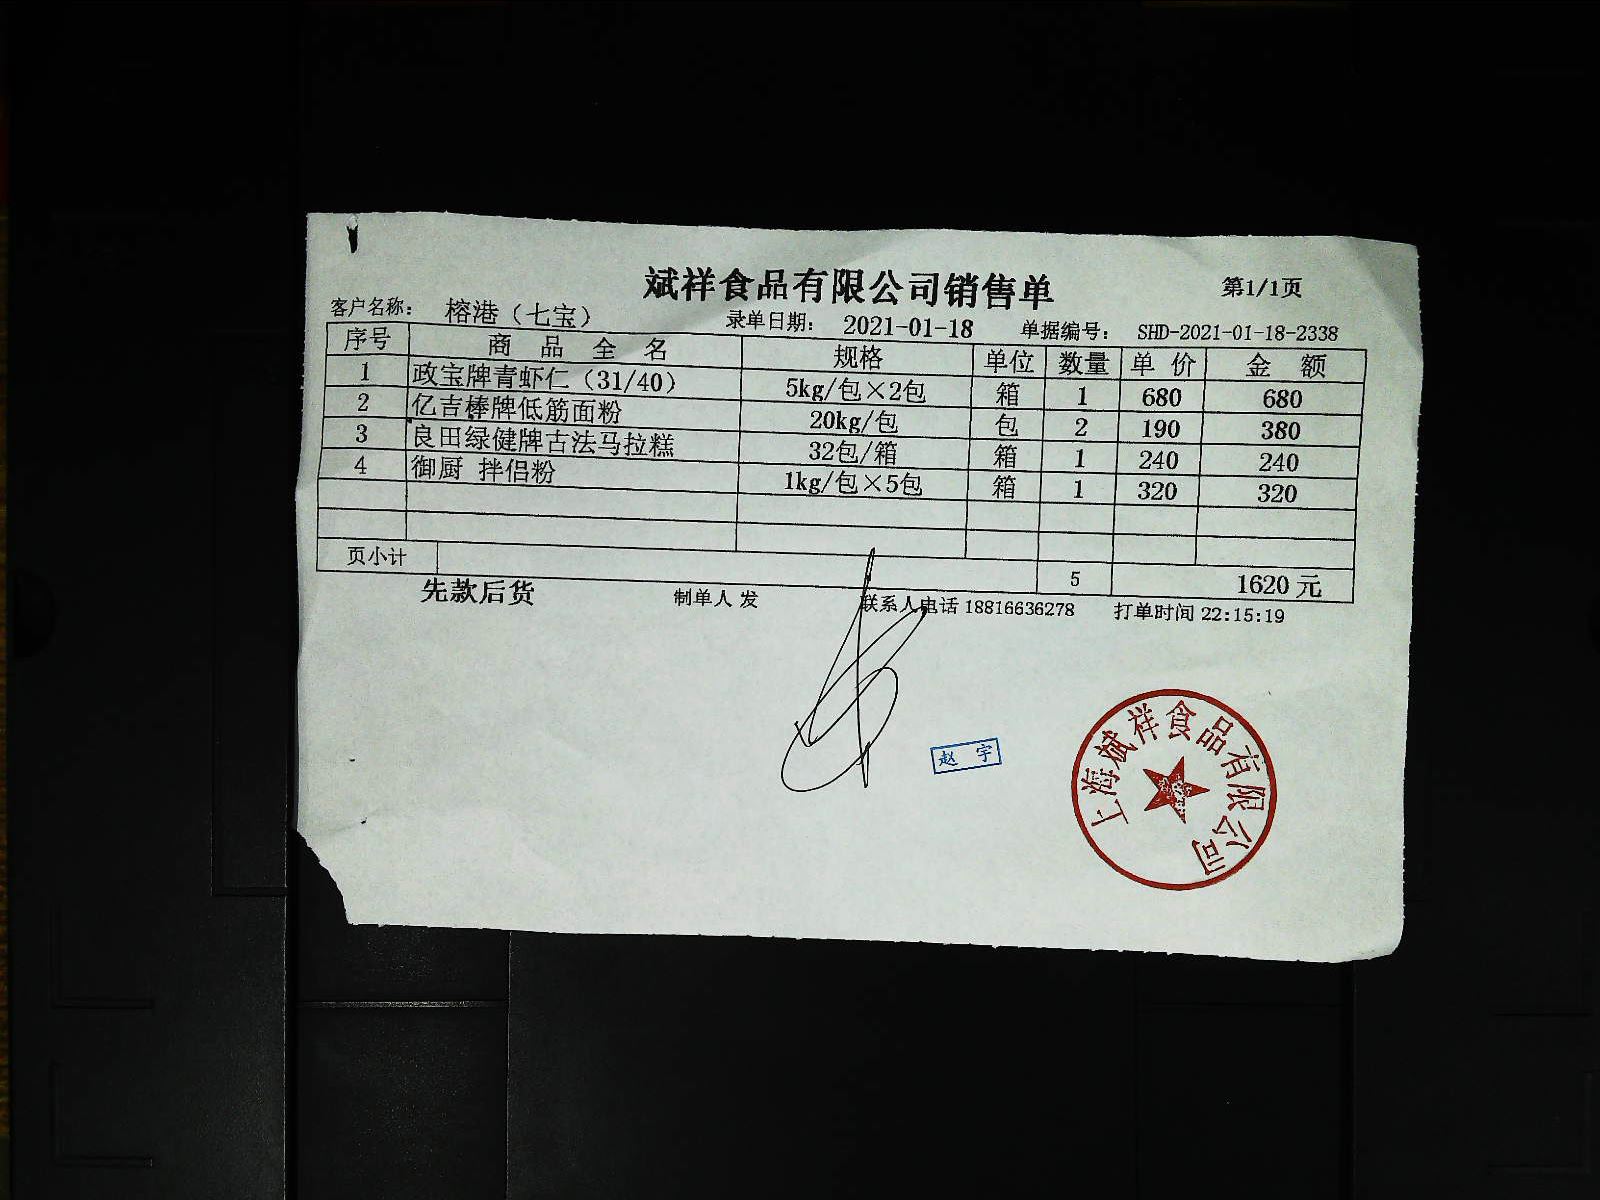 斌祥食品有限公司销售单 第1/1页
客户名称： 榕港（七宝） 录单日期： 2021-01-18 单据编号： SHD-2021-01-18-2338
序号 商 品 全 名 规格 单位 数量 单 价 金 额
1 政宝牌青虾仁（31/40） 5kg/包×2包 箱 1 680 680
2 亿吉棒牌低筋面粉 20kg/包 包 2 190 380
3 良田绿健牌古法马拉糕 32包/箱 箱 1 240 240
4 御厨 拌侣粉 1kg/包×5包 箱 1 320 320
页小计 5 1620 元
先款后货 制单人 发 联系人电话 18816636278 打单时间 22:15:19
赵 宇
上海斌祥食品有限公司